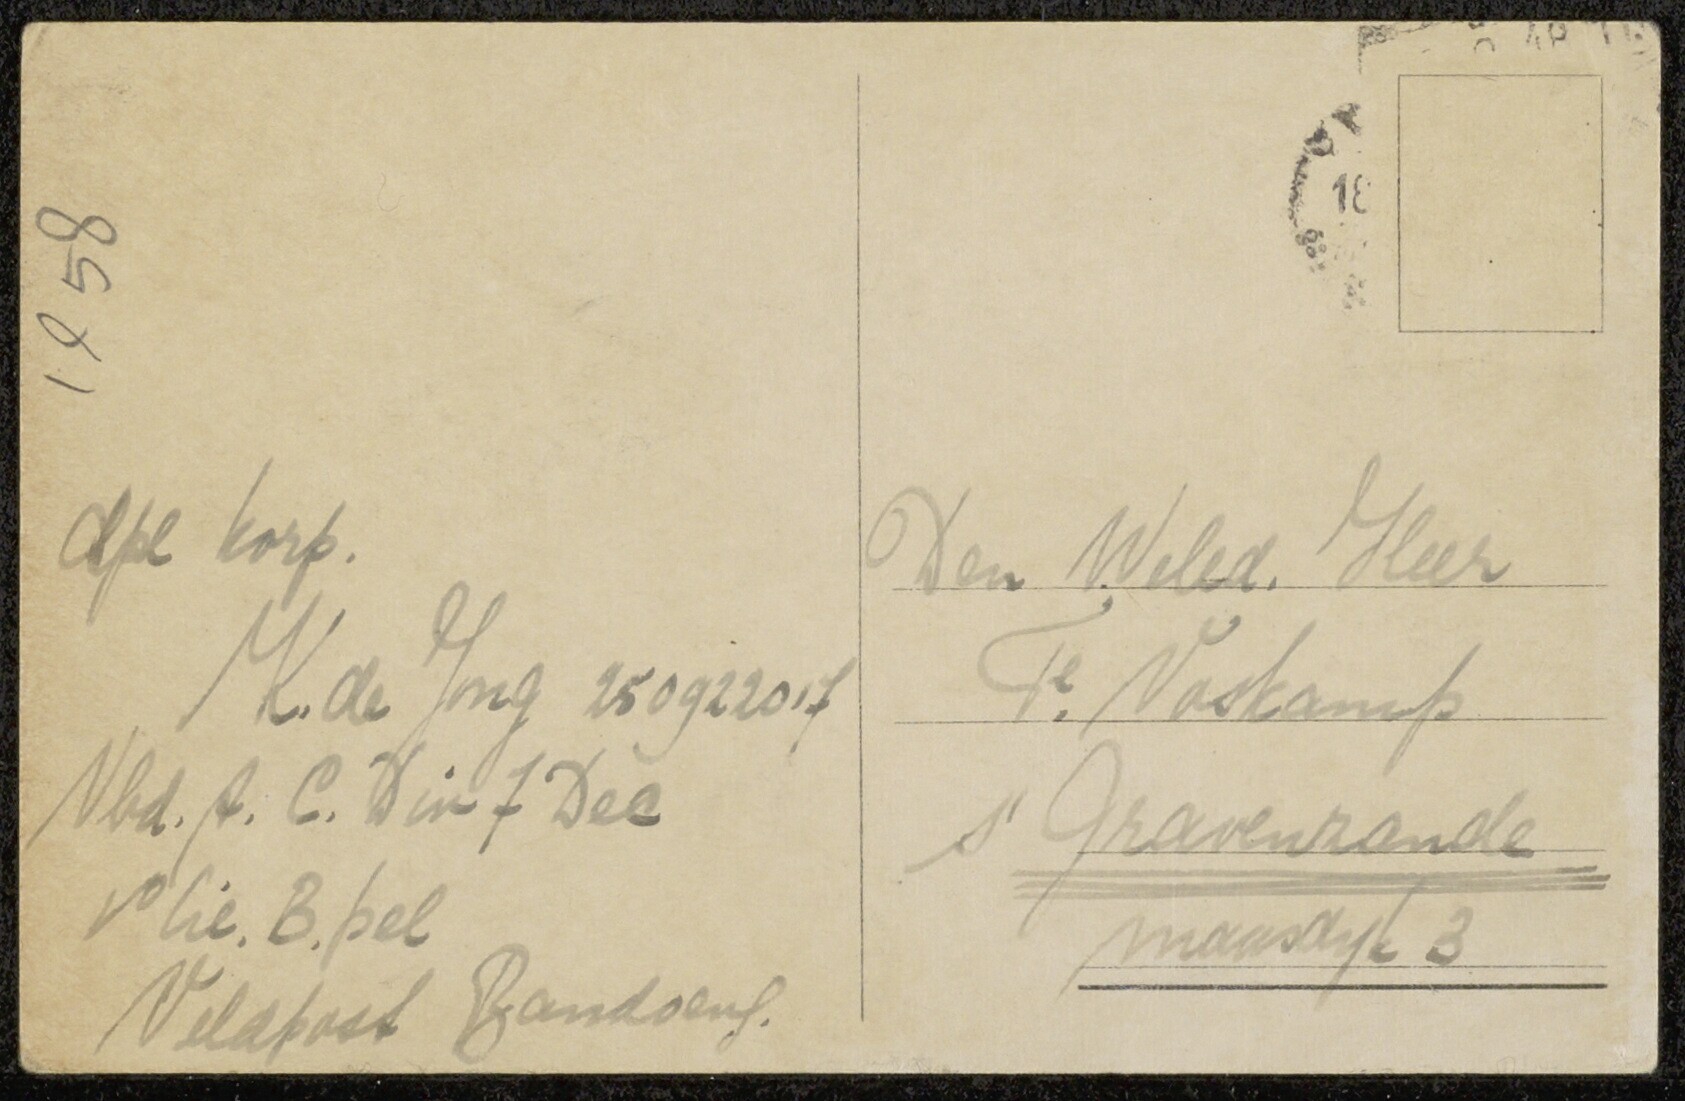 1958
dpl korp.
K. de Jong 250922017
Vbd. A. C. Div 7 Dec
Cie. B. pel
Veldpost Bandoeng.
18
Den Weled. Heer
Voskamp
s' Gravenzande
maasdyk 3